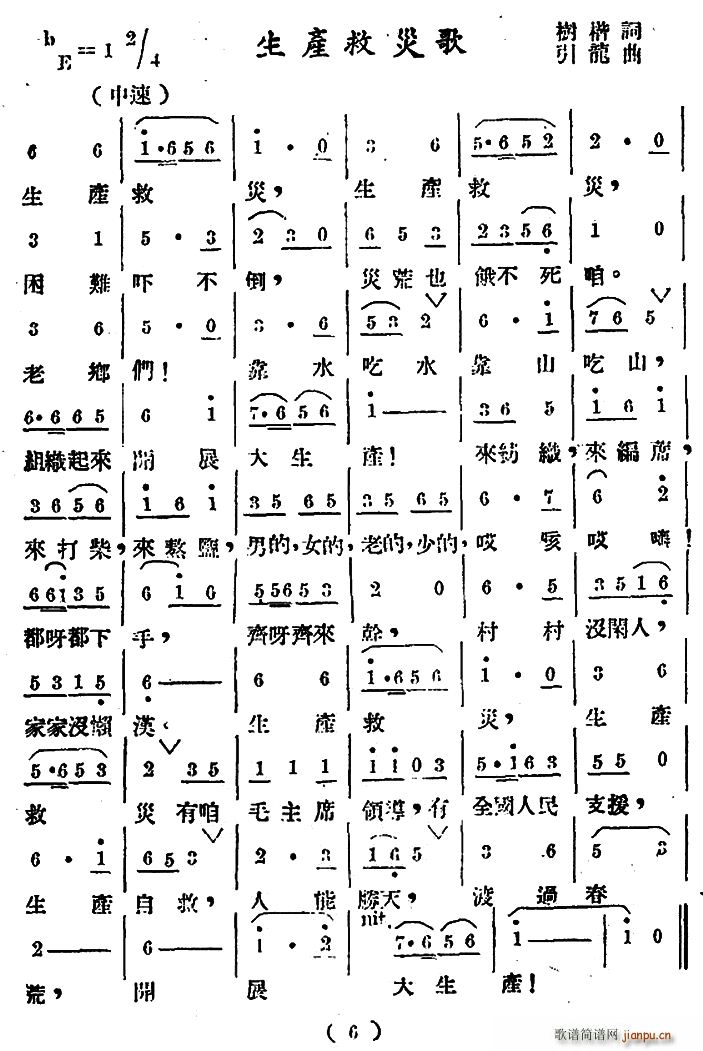 ᵇE=1 2/4
生產救災歌
樹楷詞
引龍曲
（中速）
6 6 | 1·656 | 1·0 | 3 6 | 5·652 | 2·0 |
生產救災，生產救災，
3 1 | 5·3 | 2 3 0 | 6 5 3 | 2356 | 1 0 |
困難吓不倒，災荒也餓不死咱。
3 6 | 5·0 | 3·6 | 53 2 | 6·1 | 76 5 |
老鄉們！靠水吃水靠山吃山，
6·665 | 6 1 | 7·656 | 1—— | 36 5 | 1 6 1 |
組織起來開展大生產！來紡織，來編蓆，
3656 | 1 6 1 | 35 65 | 35 65 | 6·7 | 6 2 |
來打柴，來熬鹽，男的，女的，老的，少的，哎咳哎喲！
66135 | 6 1 6 | 55653 | 2 0 | 6·5 | 3516 |
都呀都下手，齊呀齊來幹，村村沒閑人，
5315 | 6—— | 6 6 | 1·656 | 1·0 | 3 6 |
家家沒懶漢、生產救災，生產
5·653 | 2 35 | 1 1 1 | 1103 | 5·163 | 55 0 |
救災有咱毛主席領導，有全國人民支援，
6·1 | 65 3 | 2·3 | 16 5 | 3 6 | 5 3 |
生產自救，人能勝天，渡過春
nit.
2—— | 6—— | 1·2 | 7·656 | 1—— | 1 0 ‖
荒，開展大生產！
（6）
歌谱简谱网
jianpu.cn